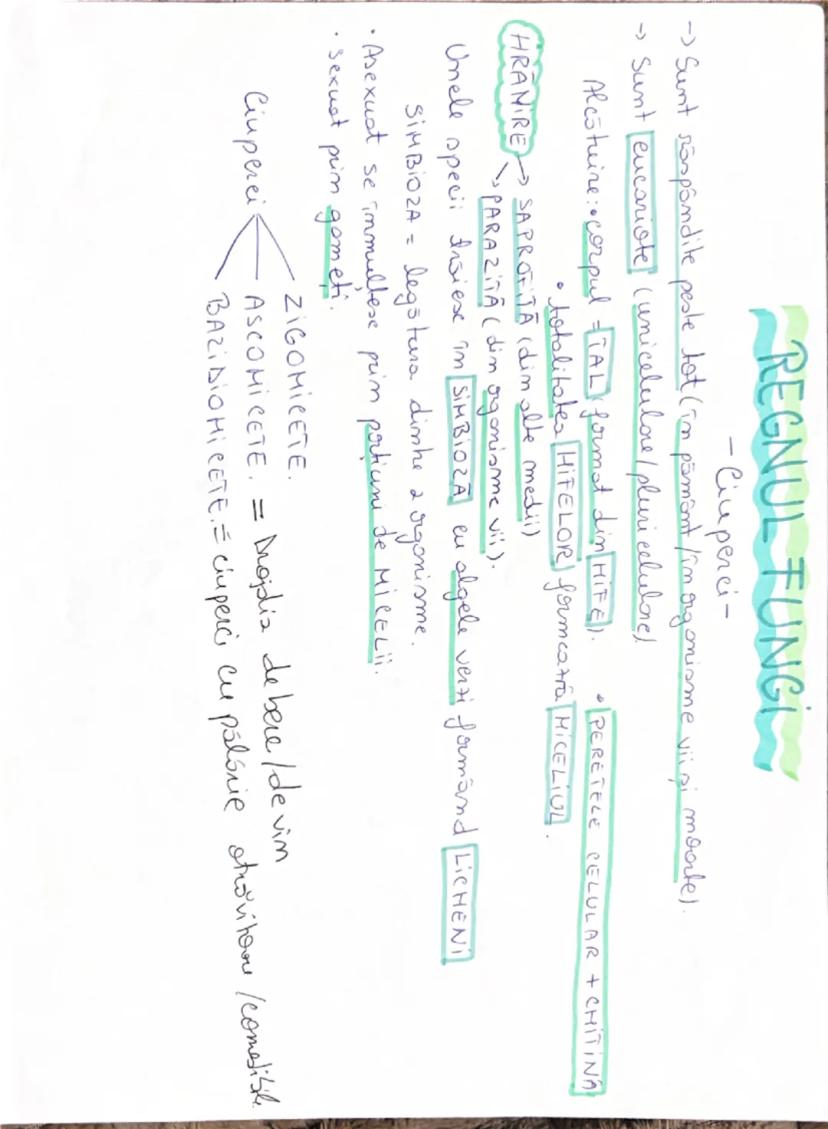 REGNUL FUNGI
- Ciuperci -
-> Sunt răspândite peste tot (în pământ/în organisme vii și moarte).
-> Sunt eucariote (unicelulare/pluricelulare)
Alcătuire: • corpul = TAL (format din HIFE). • PERETELE CELULAR + CHITINĂ
• totalitatea HIFELOR formează MICELIUL.
HRĂNIRE -> SAPROFITĂ (din alte medii)
-> PARAZITĂ (din organisme vii).
Unele specii trăiesc în SIMBIOZĂ cu algele verzi formând LICHENI
SIMBIOZA = legătura dintre 2 organisme.
• Asexuat se înmulțesc prin porțiuni de MICELII.
• Sexuat prin gameți.
ZIGOMICETE.
Ciuperci ASCOMICETE. = Drojdia de bere/de vin
BAZIDIOMICETE. = ciuperci cu pălărie otrăvitoare/comestibile